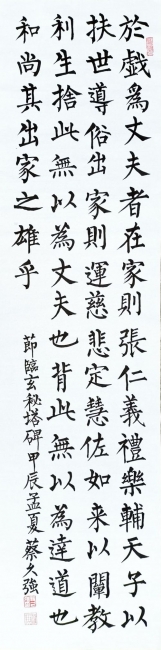 於戯爲丈夫者在家則張仁義禮樂輔天子以
扶世導俗出家則運慈悲定慧佐如来以闡教
利生捨此無以為丈夫也背此無以為達道也
和尚其出家之雄乎
節臨玄秘塔碑甲辰孟夏蔡久強